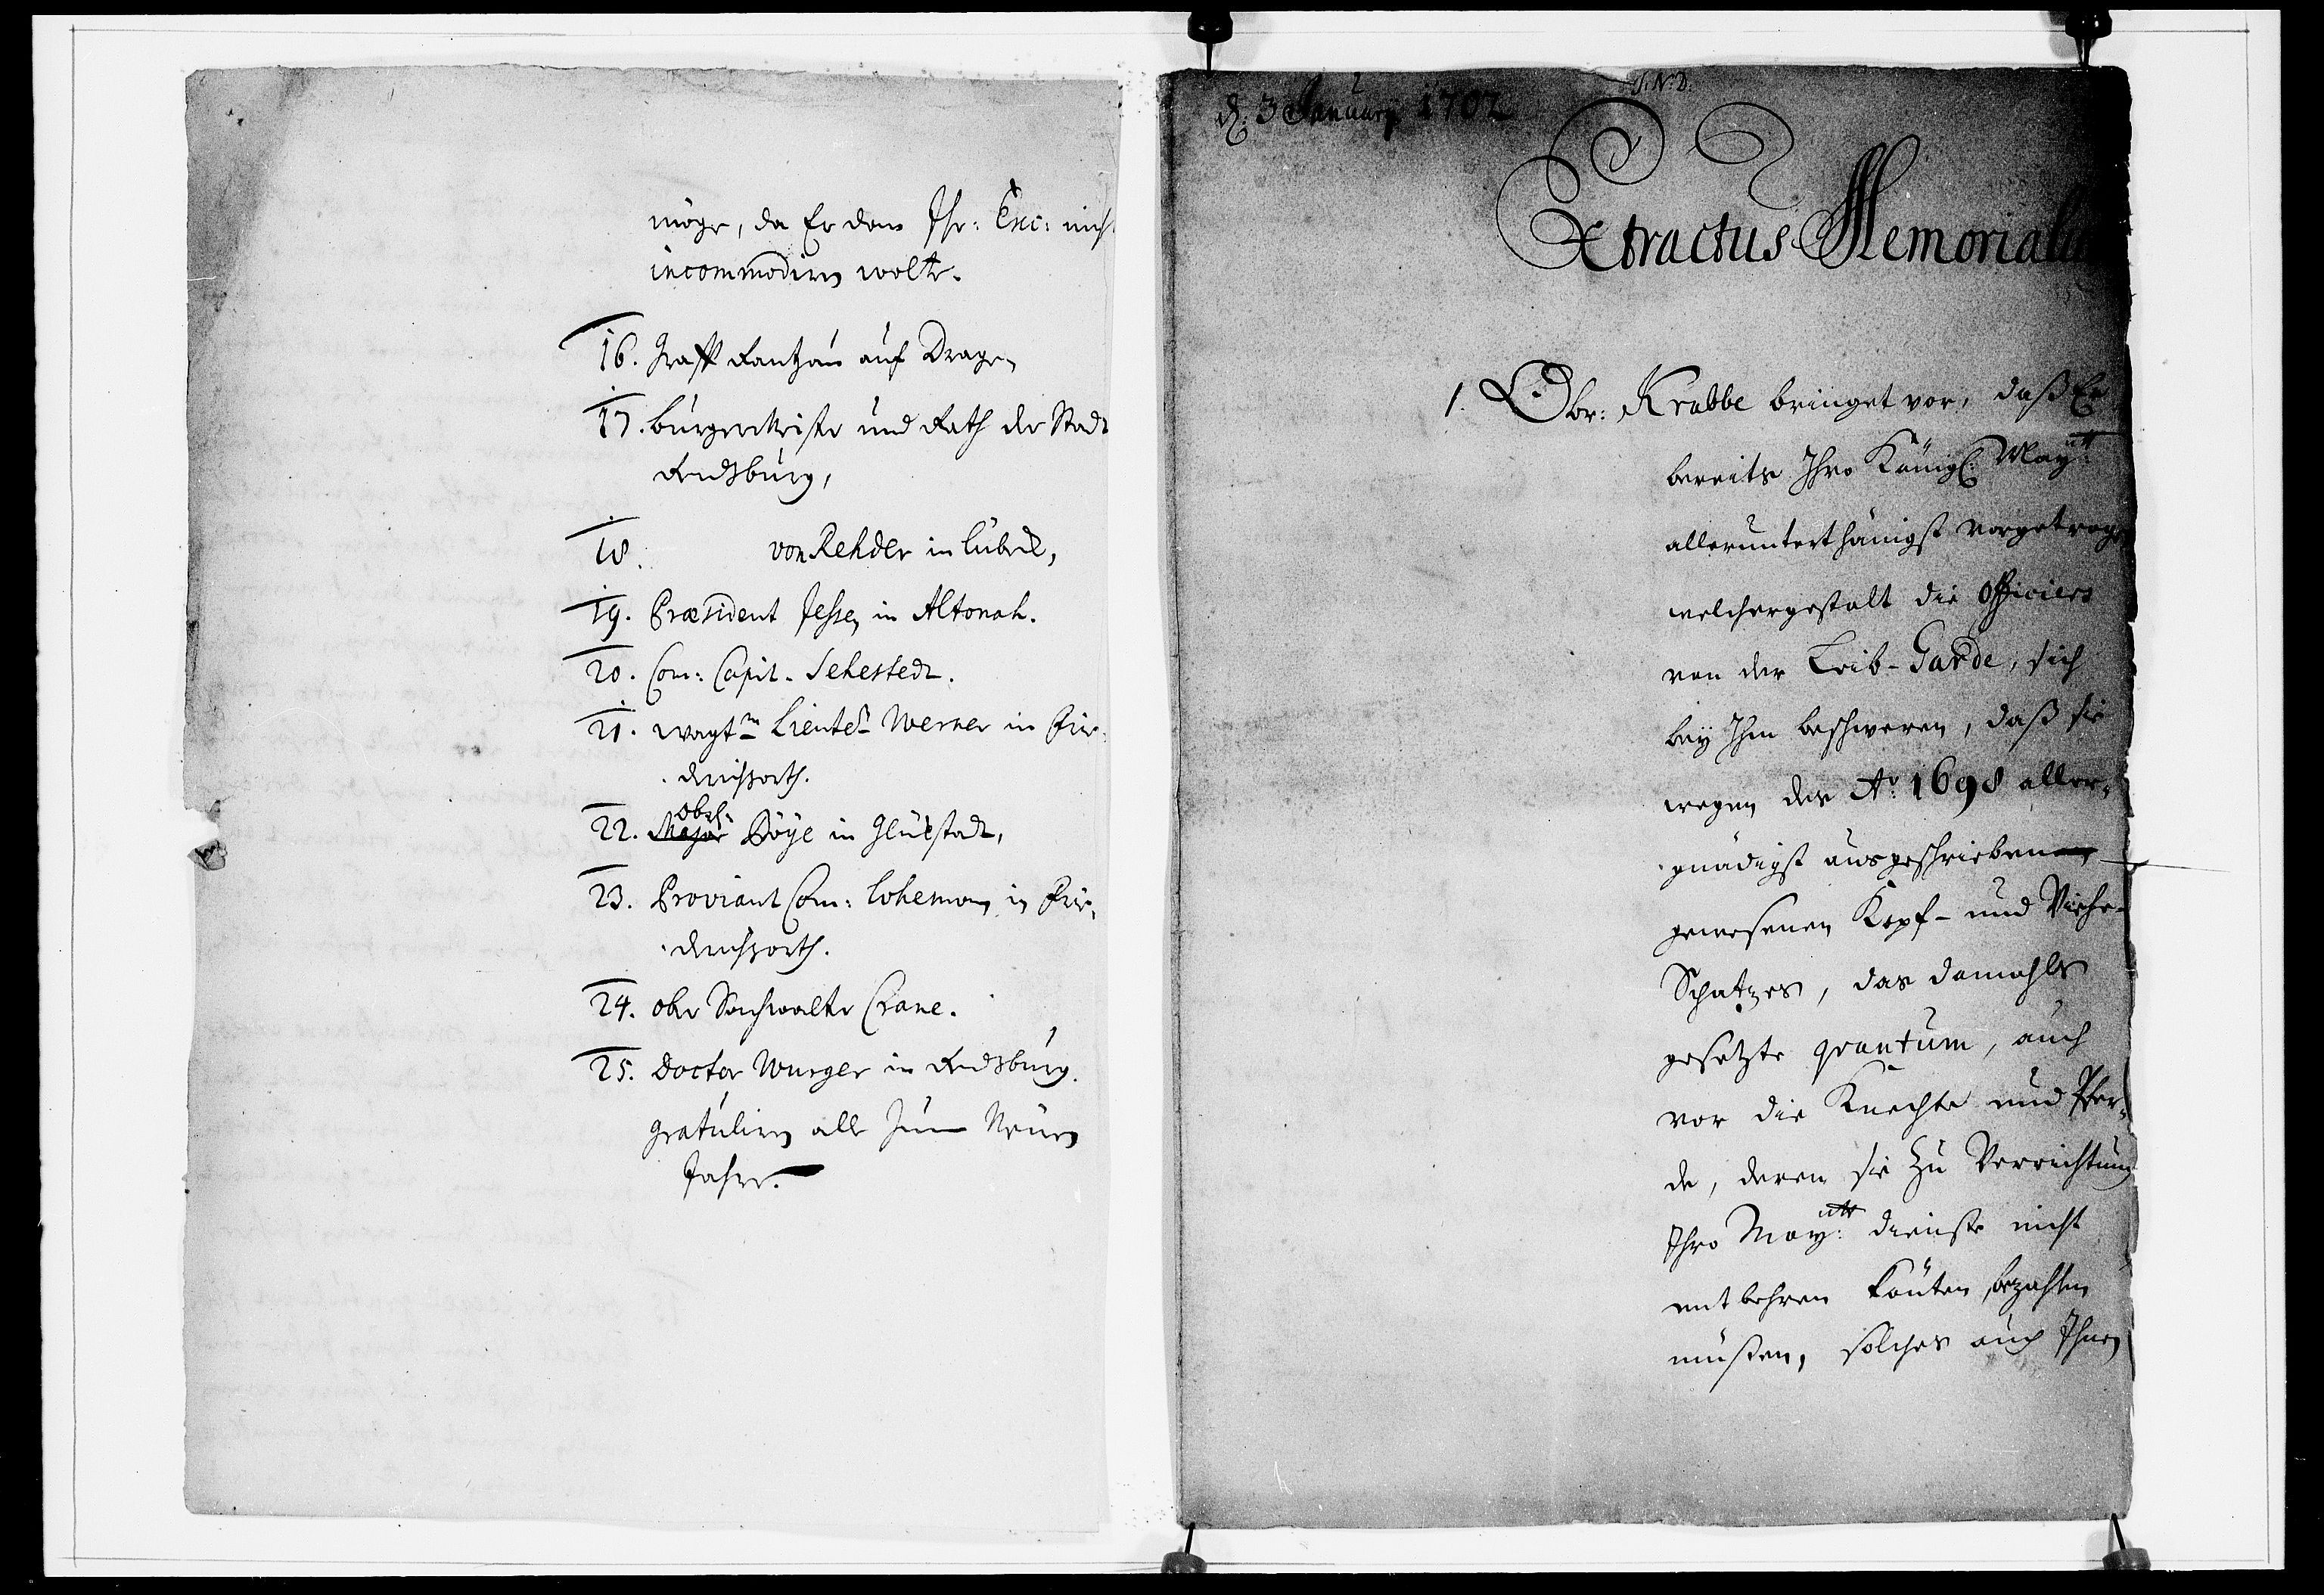 möge, da Er dem Ihr: Exc: nich
incommodiren wolte.
16. Graff Rantzau auf Dragen
17. Bürgermeister und Rath der Stadt
Rendsburg,
18. von Rehder in Lübeck,
19. Præsident Jessen in Altonah.
20. Com: Capit. Sehestedt.
21. Wagtm Lieutet Werner in Frie-
derichsorth.
Obrl:
22. Major Böye in Glükstadt,
23. Proviant Com: Lohemon in Frie-
derichsorth.
24. Ober Sachwalter Crane.
25. Doctor Wurger in Rendsburg.
gratuliren alle zum Neuen
Jahre.
d. 3 January 1702
J. N. D.
Extractus Memorial
1. Obr: Krabbe bringet vor, daß Er
bereits Ihro Königl: Maytt
alleruntherthänigst vorgetrage
welchergestalt die Officiers
von der Leib-Garde, sich
bey Ihm beschweren, daß sie
wegen des Ao: 1698 aller-
gnädigst ausgeschrieben
gewesenen Kopf- und Viehe-
Schatzes, das damahls
gesetzte quantum, auch
vor die Knechte und Pfer-
de, deren sie zu Verrichtung
Ihro Maytt: dienste nicht
entbehren könten, bezahlen
müßen, solches auch Ihnen